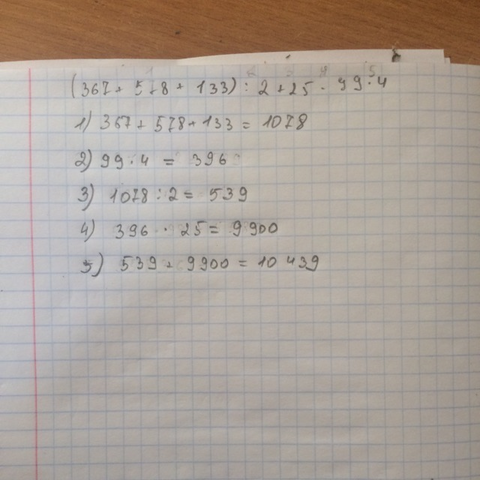 (367+578+133):2+25·99·4
1) 367+578+133=1078
2) 99·4=396
3) 1078:2=539
4) 396·25=9900
5) 539+9900=10439